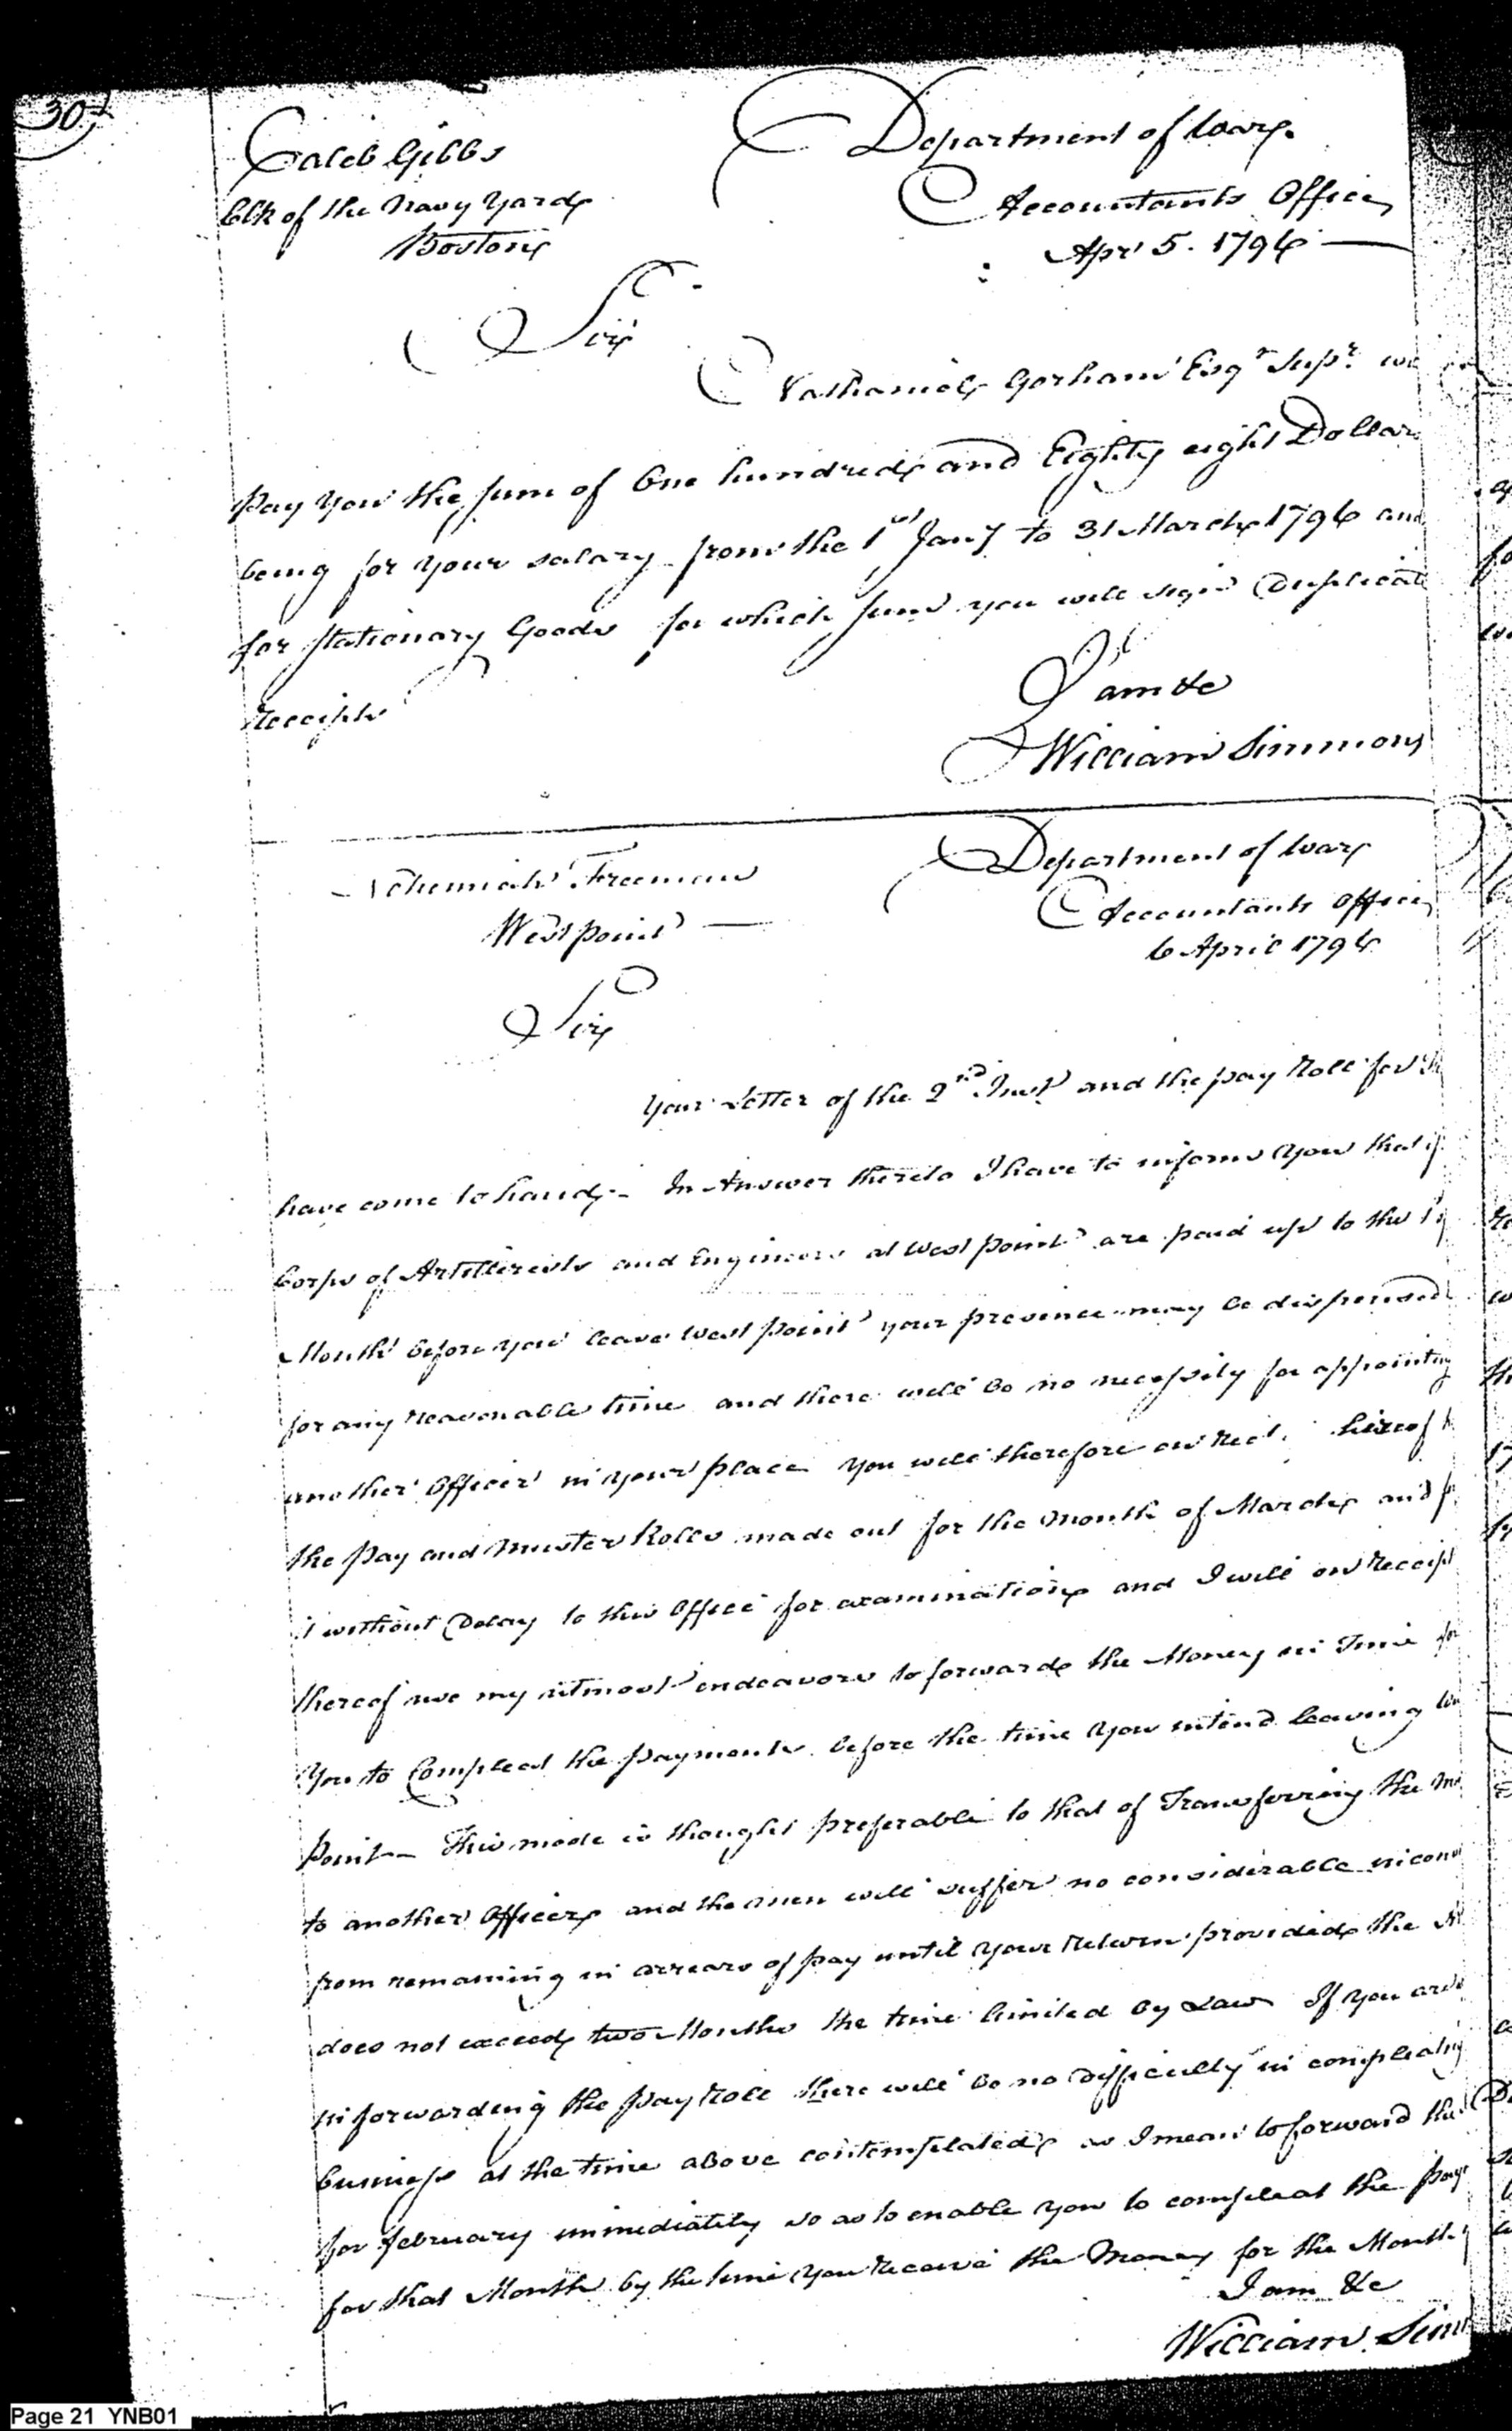 304
Caleb Gibbs
Clk of the Navy Yard
Boston
Department of War
Accountants Office
Apr 5. 1796
Sir
Nathaniel Gorham Esqr Supr.
Pay You the sum of One hundred and Eighty eight Dollars
being for your salary from the 1st Jany to 31 March 1796 and
for Stationary Goods for which sum you will sign Duplicate
Receipts
I am &c
William Simmons
Nehemiah Freeman
West point
Department of War
Accountants Office
6 April 1796
Sir
Your Letter of the 2nd Inst and the pay Roll for
have come to hand - In Answer thereto I have to inform You that if
Corps of Artillerists and Engineers at West point are paid up to the
Month before you leave West point your presence may be dispensed
for any reasonable time and there will be no necessity for appointing
another Officer in your place You will therefore on rect. hereof
the Pay and Muster Rolls made out for the Month of March and
it without Delay to this Office for examination and I will on receipt
thereof use my utmost endeavors to forward the Money in Time for
You to Compleat the payments before the time You intend leaving
Point - This mode is thought preferable to that of Transferring the
to another Officer and the men will suffer no considerable
from remaining in arrears of pay until your return provided the
does not exceed two Months the time limited by Law If You are
in forwarding the Pay Roll there will be no difficulty in compleating
business at the time above contemplated as I mean to forward the
for February immediately so as to enable you to compleat the pay
for that Month by the time You receive the Money for the Month
I am &c
William Sim
Page 21 YNB01